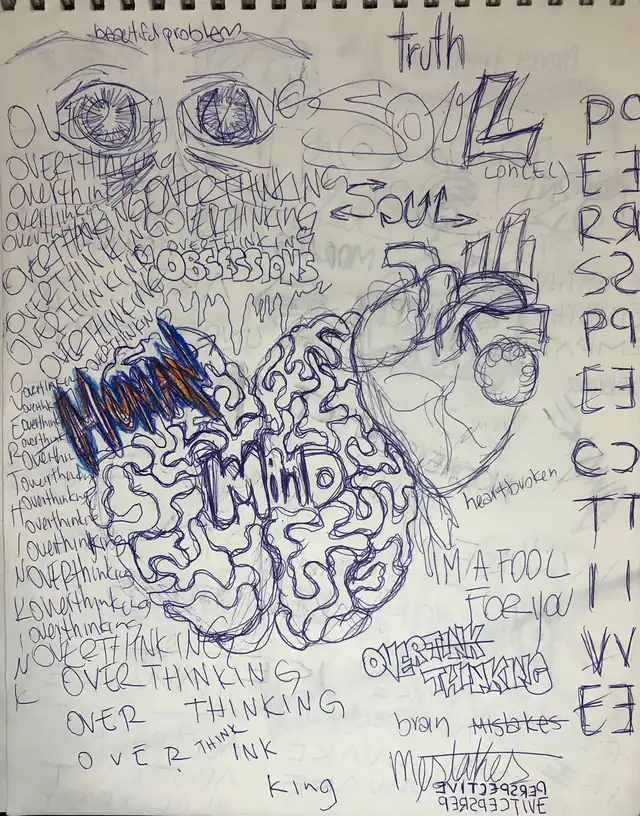 beautiful problem
truth
OVERTHINKING
SOUL
LON(EL)
OVERTHINKING
overthink
OVERTHINKING
overthinking
OVERTHINKING
overthinking
OVERTHINKING
OVERTHINKING
SOUL
OVERTHINKING
OBSESSIONS
OVERTHINKING
OVERTHINKING
OVERTHINKING
HUMAN
MinD
heartbroken
O overthink
V overthink
E overthink
R overthink
T overthinking
H overthinking
I overthinking
N OVERThinking
K OVerthinking
I overthinking
N OVERTHINKING
K
OVERTHINKING
OVER THINKING
OVERTHINK INK
king
I'M A FOOL
FOR YOU
OVERTINK
THINKING
brain mistakes
Mistakes
PERSPECTIVE
PERSPECTIVE
P P
E E
R R
S S
P P
E E
C C
T T
I I
V V
E E